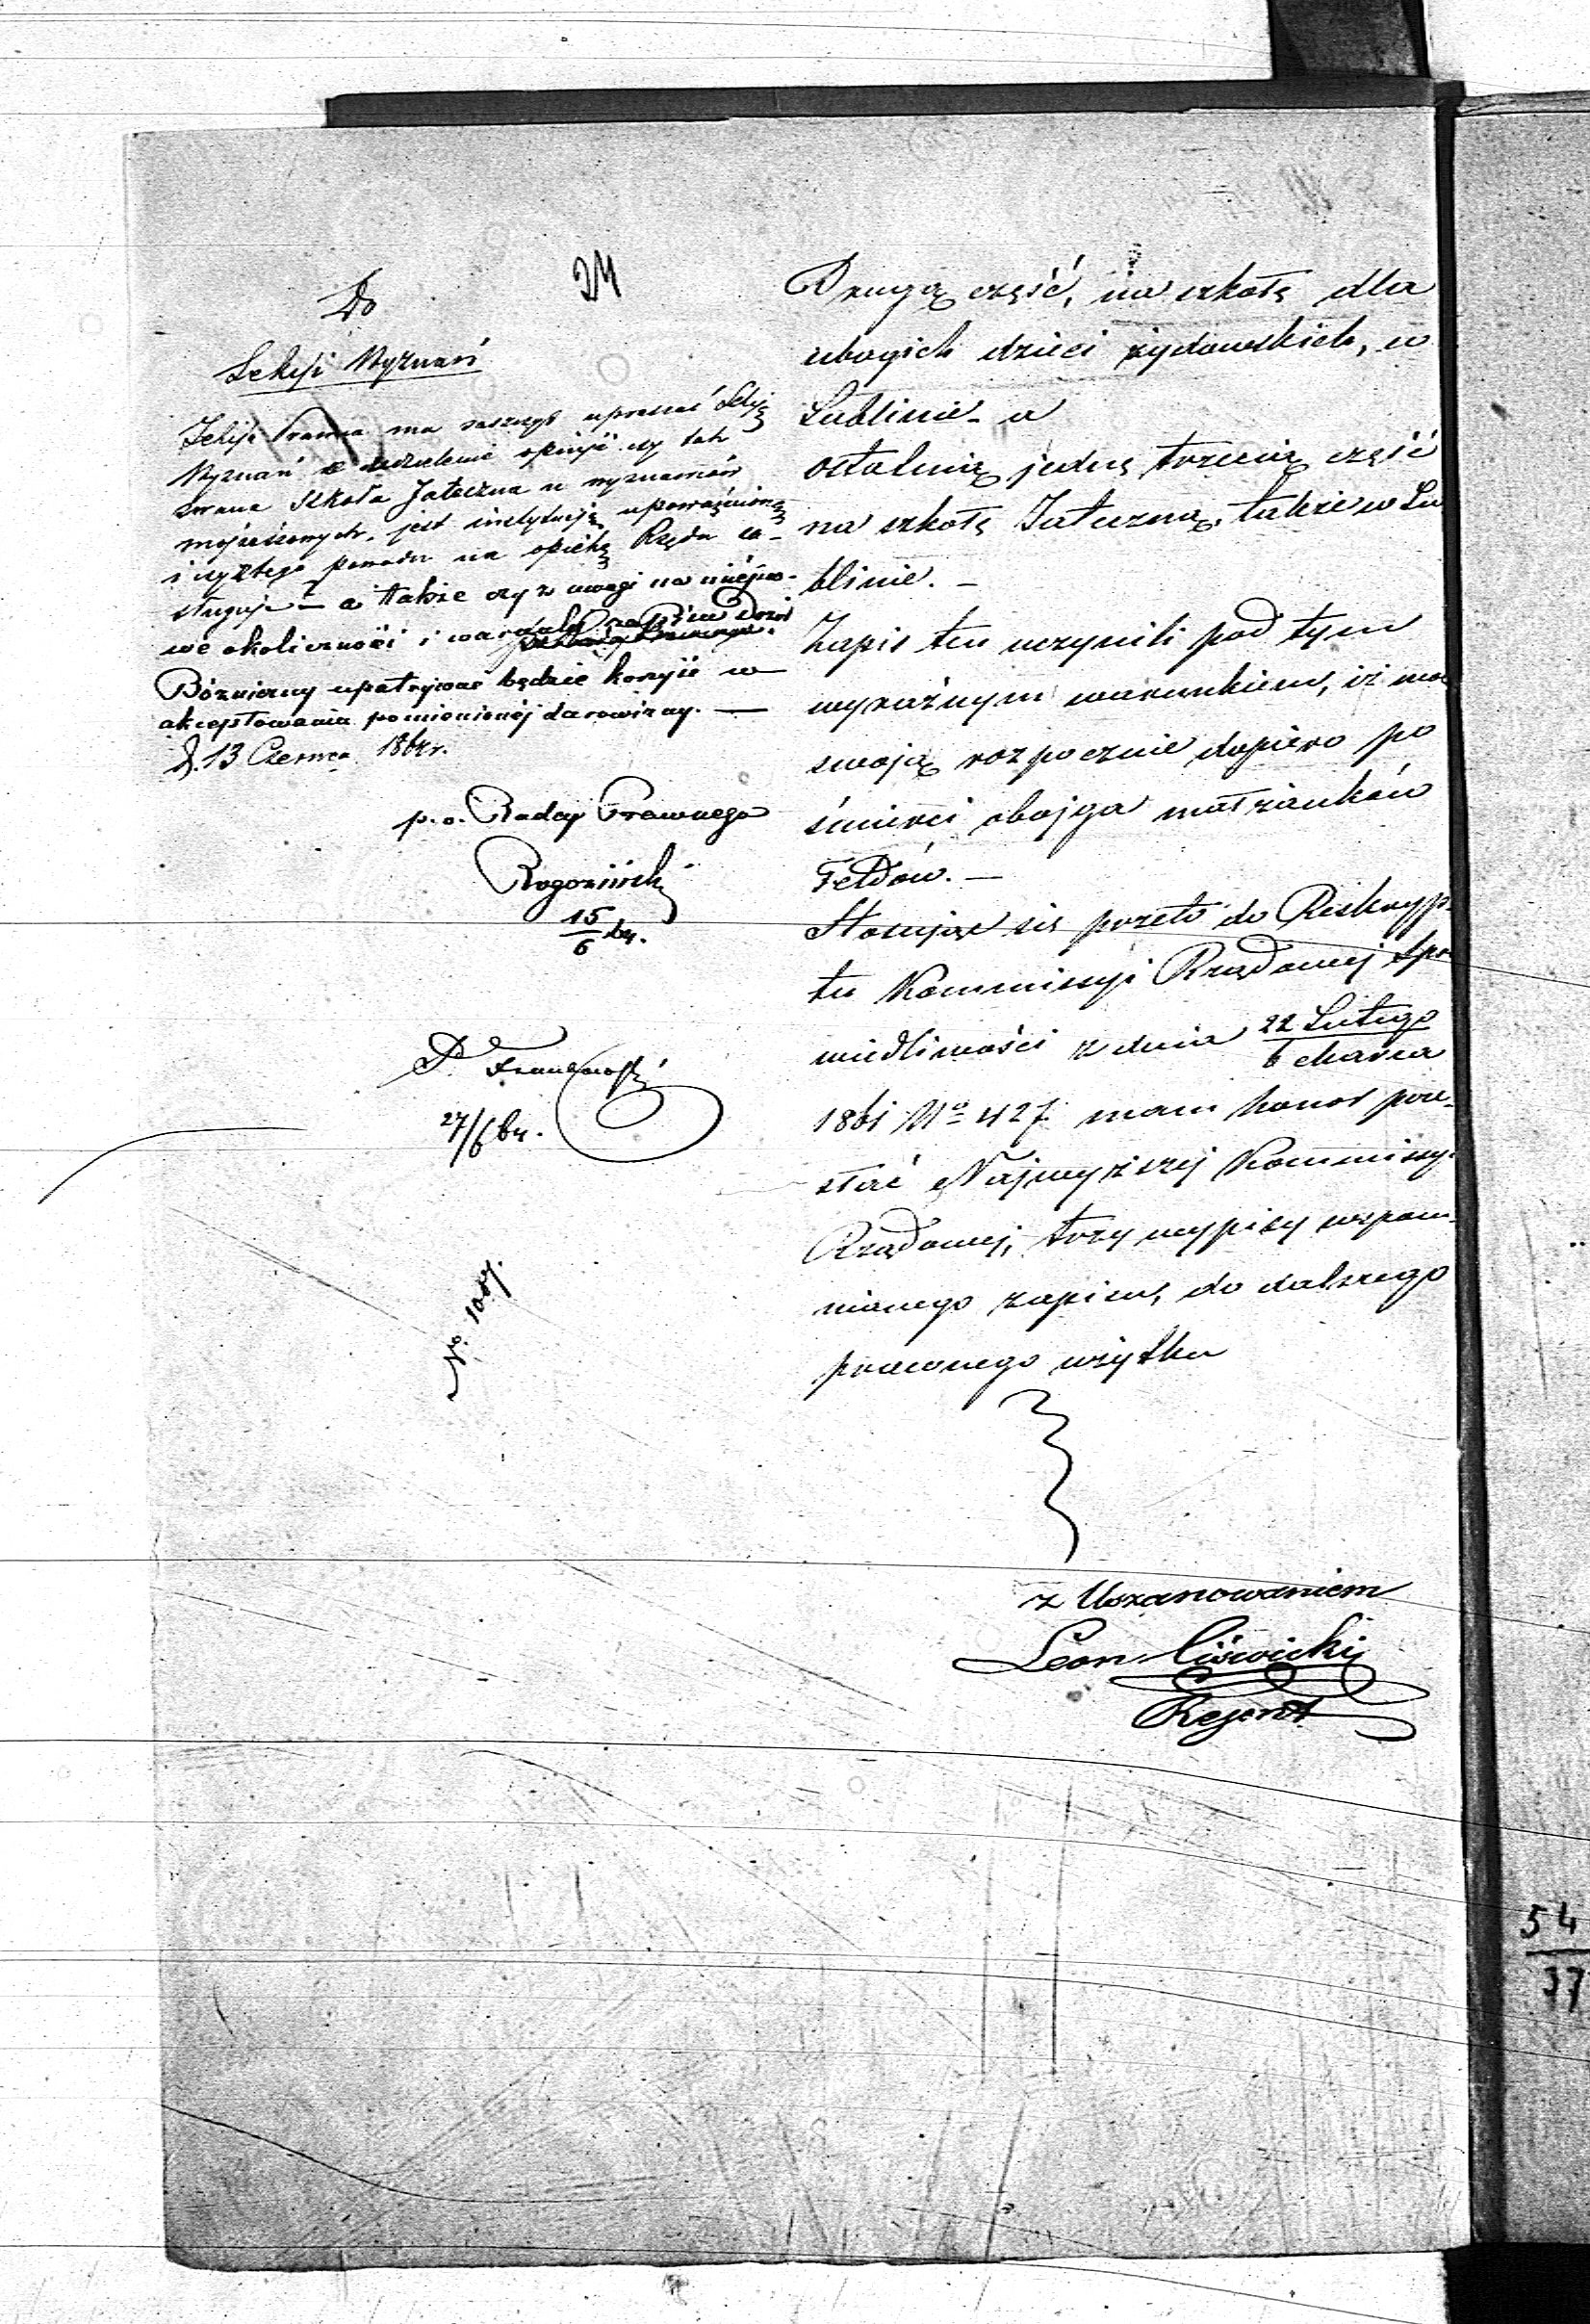 24
Do
Sekcji Wyznań
Sekcja Prawna ma zaszczyt upraszać Sekcyą
Wyznań o udzielenie opinji czy tak
zwana Szkoła Jateczna u wyznawców
mojżeszowych, jest instytucją upoważnioną
i czy z tego powodu na opiekę Rządu za-
sługuje — a także czy z uwagi na miejsco-
we okoliczności i warunki zapisu Dozór
Bóżniczny upatrywać będzie korzyść w
akceptowaniu pomienionéj darowizny. —
d. 13 Czerwca 1864 r.
p. o. Radcy Prawnego
Rogoziński
15/6 64.
27/6 64.
Drugą część, na szkołę dla
ubogich dzieci żydowskich, w
Lublinie – a
ostatnią jedną trzecią część
na szkołę Jateczną, także w Lu
blinie. –
Zapis ten uczynili pod tym
wyraźnym warunkiem, iż moc
swoją rozpocznie dopiero po
śmierci obojga małżonków
Feldów. –
Stosując się przeto do Reskryp-
tu Kommissyi Rządowej Spra
wiedliwości z dnia 22 Lutego
6 Marca
1861 No 427 mam honor prze-
słać Najwyższej Kommissyi
Rządowej, trzy wypisy wspom-
nianego zapisu, do dalszego
prawnego użytku
z Uszanowaniem
Leon
Rejent
54
37